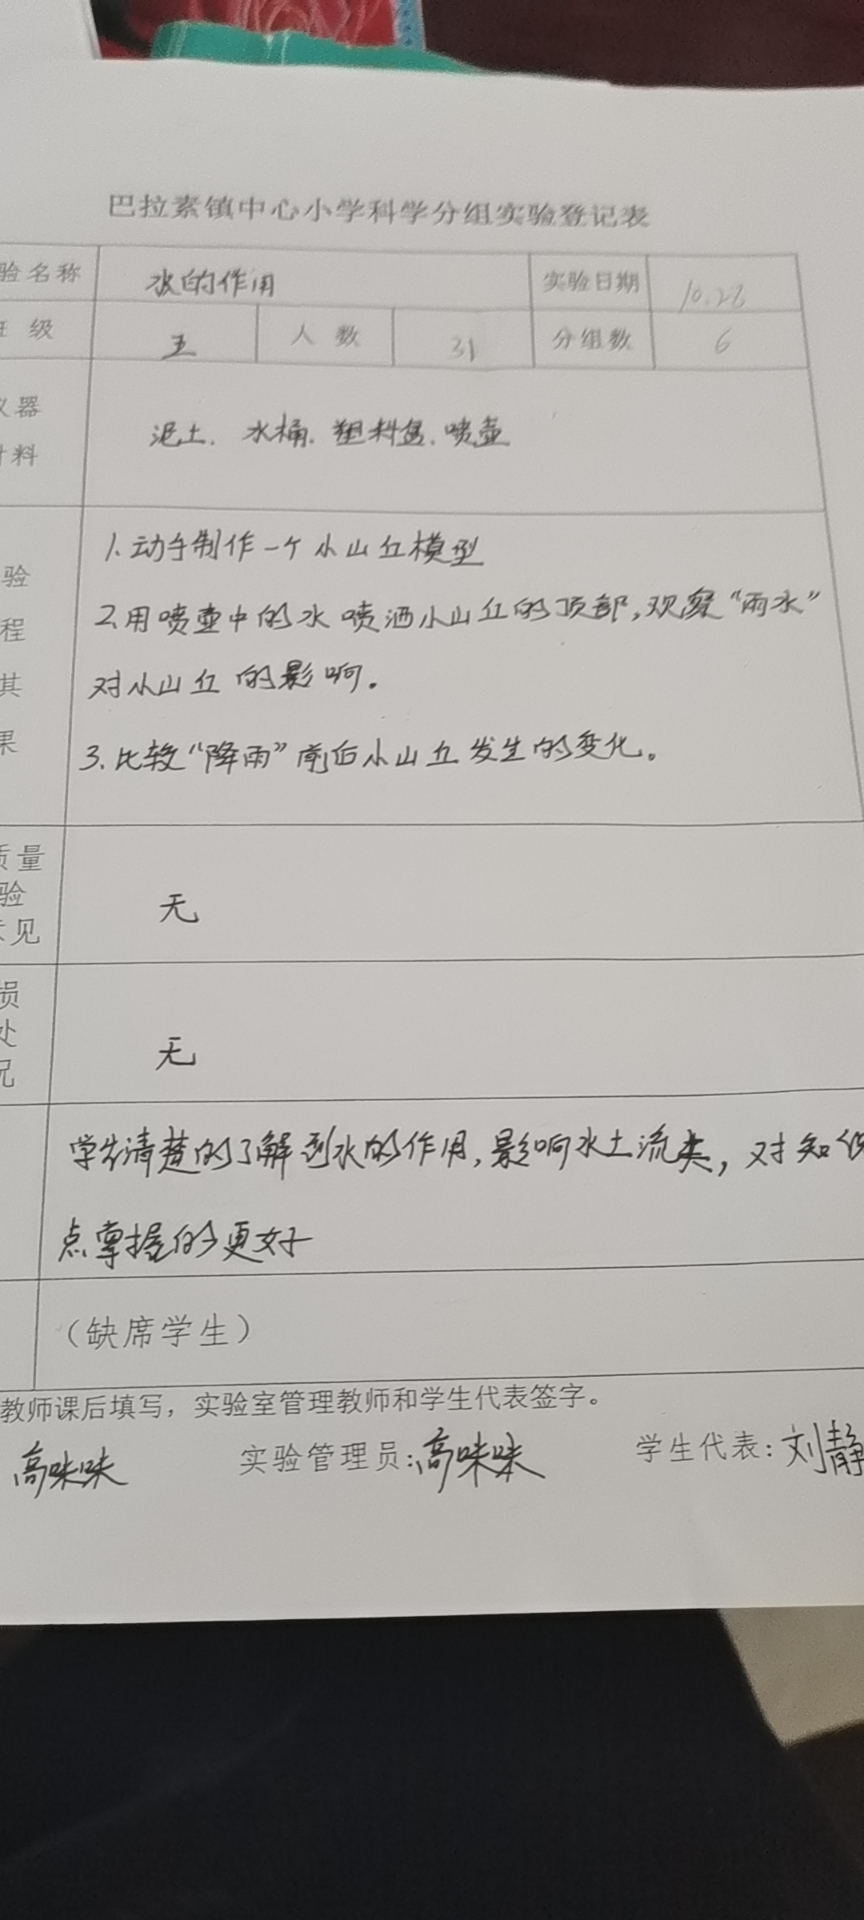 巴拉素镇中心小学科学分组实验登记表
验名称 水的作用 实验日期 10.28
班 级 五 人 数 31 分组数 6
仪器
材料
泥土、水桶、塑料盆、喷壶
验
程
其
果
1.动手制作一个小山丘模型
2.用喷壶中的水喷洒小山丘的顶部,观察“雨水”
对小山丘的影响。
3.比较“降雨”前后小山丘发生的变化。
质量
验
意见
无
损
处
况
无
学生清楚的了解到水的作用,影响水土流失,对知识
点掌握的更好
（缺席学生）
教师课后填写，实验室管理教师和学生代表签字。
高味味 实验管理员:高味味 学生代表:刘静